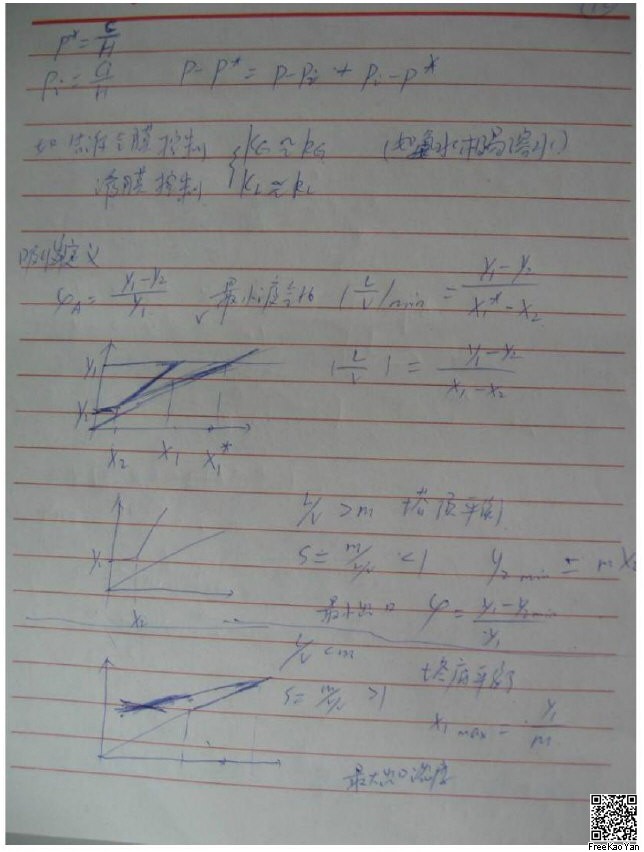 P* = C/H
Pi = Ci/H P-P* = P-Pi + Pi-P*
如 气膜控制 KG ≈ kG
液膜控制 KL ≈ kL
吸收 定义
φA = (y1-y2)/y1 最小液气比 (L/V)min = (y1-y2)/(x1*-x2)
(L/V) = (y1-y2)/(x1-x2)
y1
y2
x2 x1 x1*
L/V > m 塔顶平衡
S = m/(L/V) < 1 y2 min = m x2
x2
φ = (y1-y2min)/y1
L/V < m 塔底平衡
S = m/(L/V) > 1
x1 max = y1/m
最大出口浓度
FreeKaoYan